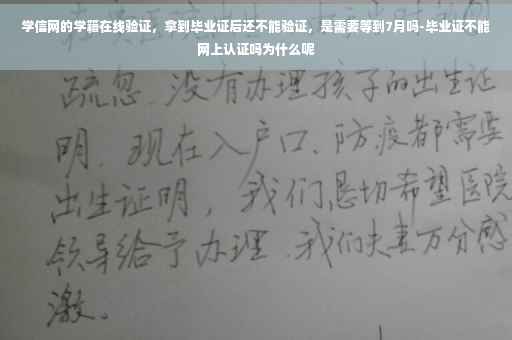 学信网的学籍在线验证，拿到毕业证后还不能验证，是需要等到7月吗-毕业证不能
网上认证吗为什么呢
疏忽.没有办理孩子的出生证
明.现在入户口、防疫都需要
出生证明，我们恳切希望医院
领导给予办理.我们夫妻万分感
激.